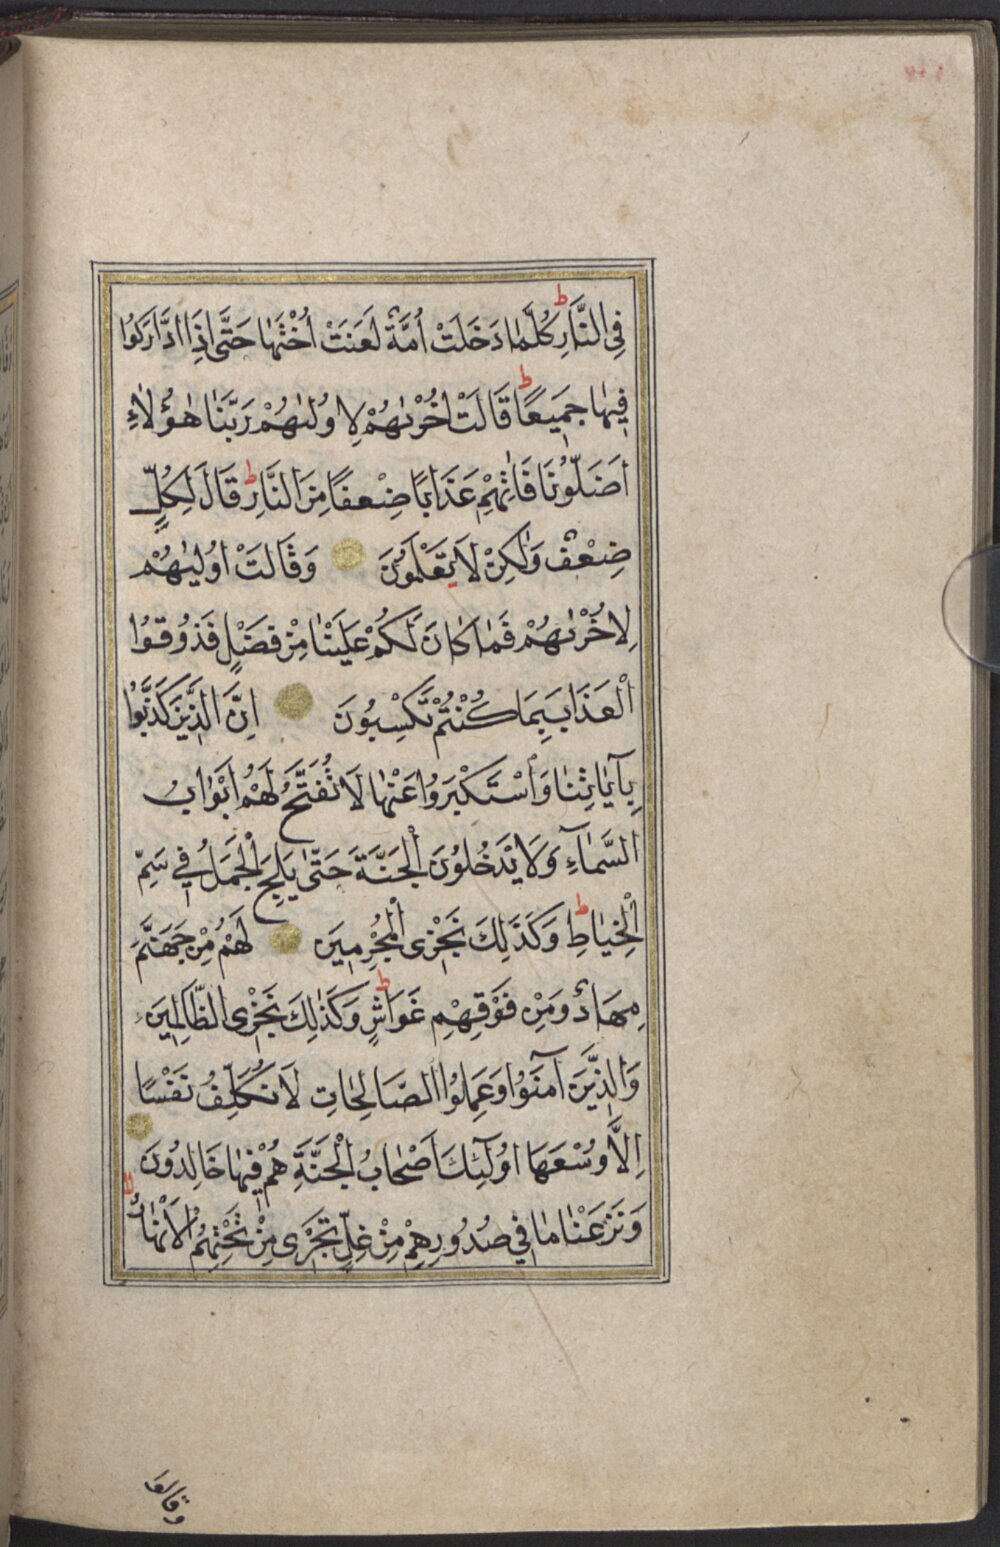 فِى النَّارِ ط كُلَّمَا دَخَلَتْ اُمَّةٌ لَعَنَتْ اُخْتَهَا حَتّٰى اِذَا ادَّارَكُوا
فِيهَا جَمِيعًا ط قَالَتْ اُخْرٰيهُمْ لِاُولٰيهُمْ رَبَّنَا هٰؤُلَاءِ
اَضَلُّونَا فَاٰتِهِمْ عَذَابًا ضِعْفًا مِنَ النَّارِ ط قَالَ لِكُلٍّ
ضِعْفٌ وَلٰكِنْ لَا يَعْلَمُونَ وَقَالَتْ اُولٰيهُمْ
لِاُخْرٰيهُمْ فَمَا كَانَ لَكُمْ عَلَيْنَا مِنْ فَضْلٍ فَذُوقُوا
الْعَذَابَ بِمَا كُنْتُمْ تَكْسِبُونَ اِنَّ الَّذِينَ كَذَّبُوا
بِآيَاتِنَا وَاسْتَكْبَرُوا عَنْهَا لَا تُفَتَّحُ لَهُمْ اَبْوَابُ
السَّمَآءِ وَلَا يَدْخُلُونَ الْجَنَّةَ حَتّٰى يَلِجَ الْجَمَلُ فِى سَمِّ
الْخِيَاطِ ط وَكَذٰلِكَ نَجْزِى الْمُجْرِمِينَ لَهُمْ مِنْ جَهَنَّمَ
مِهَادٌ وَمِنْ فَوْقِهِمْ غَوَاشٍ ط وَكَذٰلِكَ نَجْزِى الظَّالِمِينَ
وَالَّذِينَ آمَنُوا وَعَمِلُوا الصَّالِحَاتِ لَا نُكَلِّفُ نَفْسًا
اِلَّا وُسْعَهَا اُولٰٓئِكَ اَصْحَابُ الْجَنَّةِ هُمْ فِيهَا خَالِدُونَ
وَنَزَعْنَا مَا فِى صُدُورِهِمْ مِنْ غِلٍّ تَجْرِى مِنْ تَحْتِهِمُ الْاَنْهَارُ
وقالوا